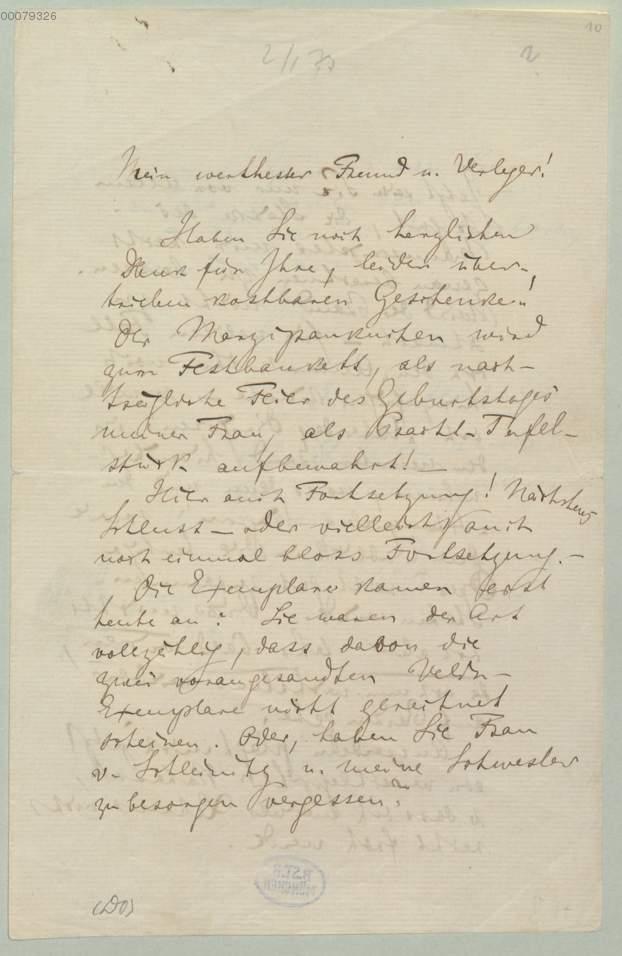 00079326
10
2/1 73
2
Mein werthester Freund u. Verleger!
Haben Sie noch herzlichen
Dank für Ihre, leider über-
trieben kostbaren Geschenke!
Der Marzipankuchen wird
zum Festbankett, als nach-
trägliche Feier des Geburtstages
meiner Frau, als Pracht-Tafel-
stück aufbewahrt! —
Hier auch Fortsetzung! Nächstens
Schluss — oder vielleicht auch
noch einmal bloss Fortsetzung. —
Die Exemplare kamen erst
heute an: Sie waren der Art
vollzählig, dass davon die
zwei vorangesandten Velin-
Exemplare nicht gerechnet
scheinen. Oder, haben Sie Frau
v. Schleinitz u. meine Schwester
zu besorgen vergessen?
B.ST.B.
MÜNCHEN